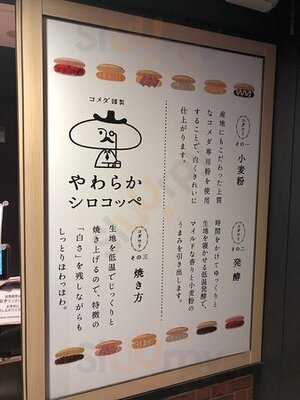 コメダ謹製
やわらか
シロコッペ
コダワリ
その一
小麦粉
産地にもこだわった上質
なコメダ専用粉を使用
することで、白くきれいに
仕上がります。
コダワリ
その二
発酵
時間をかけてゆっくりと
生地を寝かせる低温発酵で、
マイルドな香りと小麦粉の
うまみを引き出します。
コダワリ
その三
焼き方
生地を低温でじっくりと
焼き上げるので、特徴の
「白さ」を残しながらも
しっとりほわっほわ。